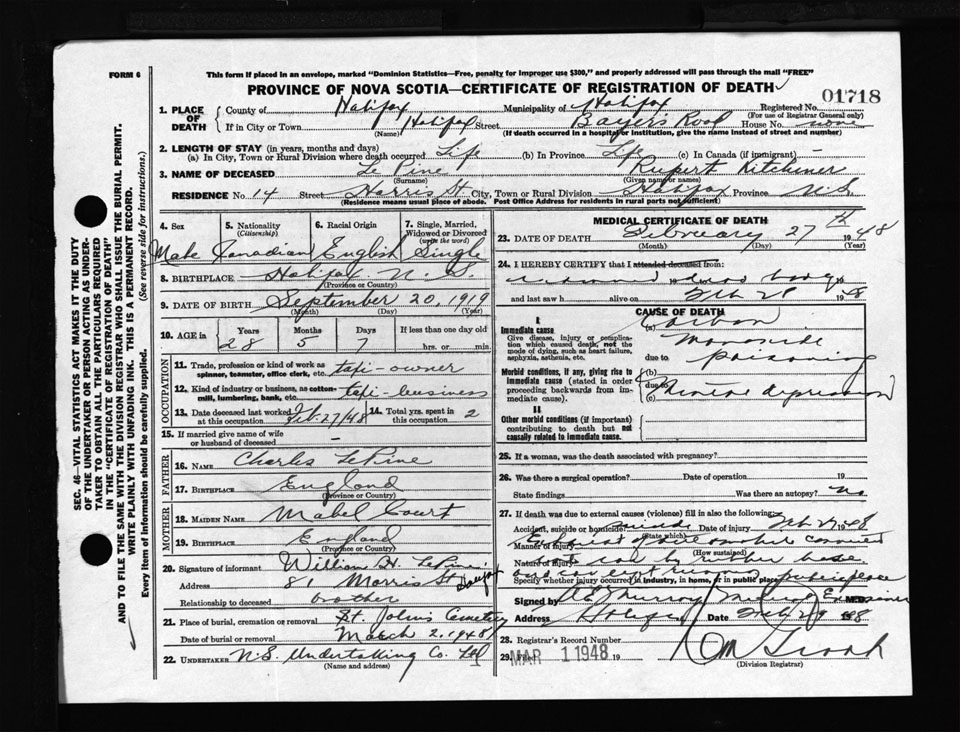 FORM 6
This form if placed in an envelope, marked "Dominion Statistics—Free, penalty for improper use $300," and properly addressed will pass through the mail "FREE"
PROVINCE OF NOVA SCOTIA—CERTIFICATE OF REGISTRATION OF DEATH
01718
1. PLACE OF DEATH
County of Halifax Municipality of Halifax Registered No.
(For use of Registrar General only)
If in City or Town Halifax Street Bayer's Road House No. none
(Name) (If death occurred in a hospital or institution, give the name instead of street and number)
2. LENGTH OF STAY (in years, months and days)
(a) In City, Town or Rural Division where death occurred Life (b) In Province Life (c) In Canada (if immigrant) —
3. NAME OF DECEASED Le Pine Rupert Kitchener
(Surname) (Given name or names)
RESIDENCE No. 14 Street Harris St. City, Town or Rural Division Halifax Province N.S.
(Residence means usual place of abode. Post Office Address for residents in rural parts not sufficient)
4. Sex
Male
5. Nationality (Citizenship)
Canadian
6. Racial Origin
English
7. Single, Married, Widowed or Divorced (write the word)
Single
8. BIRTHPLACE Halifax N. S.
(Province or Country)
9. DATE OF BIRTH September 20, 1919
(Month) (Day) (Year)
10. AGE in
Years Months Days If less than one day old
28 5 7 hrs. or min.
OCCUPATION
11. Trade, profession or kind of work as spinner, teamster, office clerk, etc. taxi-owner
12. Kind of industry or business, as cotton-mill, lumbering, bank, etc. taxi-business
13. Date deceased last worked at this occupation Feb-27/48
14. Total yrs. spent in this occupation 2
15. If married give name of wife or husband of deceased —
FATHER
16. NAME Charles LePine
17. BIRTHPLACE England
(Province or Country)
MOTHER
18. MAIDEN NAME Mabel Court
19. BIRTHPLACE England
(Province or Country)
20. Signature of informant William H. LePine
Address 81 Morris St.
Relationship to deceased brother
21. Place of burial, cremation or removal St. John's Cemetery
Date of burial or removal March 2. 1948
22. UNDERTAKER N.S. Undertaking Co. Ltd
(Name and address)
MEDICAL CERTIFICATE OF DEATH
23. DATE OF DEATH February 27th 1948
(Month) (Day) (Year)
24. I HEREBY CERTIFY that I attended deceased from:
dead body
and last saw h alive on Feb 28 1948
CAUSE OF DEATH
I.
Immediate cause
Give disease, injury or complication which caused death, not the mode of dying, such as heart failure, asphyxia, asthenia, etc.
(a) Carbon monoxide
due to poisoning
Morbid conditions, if any, giving rise to immediate cause (stated in order proceeding backwards from immediate cause).
(b)
due to
(c) depression
II
Other morbid conditions (if important) contributing to death but not causally related to immediate cause.
25. If a woman, was the death associated with pregnancy?
26. Was there a surgical operation? Date of operation 19
State findings Was there an autopsy? no
27. If death was due to external causes (violence) fill in also the following:
Accident, suicide or homicide? suicide Date of injury Feb 27 1948
(State which)
Manner of injury Exhaust connected
(How sustained)
Nature of injury to car by rubber hose
Specify whether injury occurred in industry, in home, or in public place public place
Signed by Murray Medical Examiner M.D.
Address Hlfx Date Feb 29 1948
28. Registrar's Record Number
29. Filed MAR 1 1948 19
(Division Registrar)
SEC. 46—VITAL STATISTICS ACT MAKES IT THE DUTY OF THE UNDERTAKER OR PERSON ACTING AS UNDERTAKER TO OBTAIN ALL THE PARTICULARS REQUIRED IN THE "CERTIFICATE OF REGISTRATION OF DEATH" AND TO FILE THE SAME WITH THE DIVISION REGISTRAR WHO SHALL ISSUE THE BURIAL PERMIT.
WRITE PLAINLY WITH UNFADING INK. THIS IS A PERMANENT RECORD.
Every item of information should be carefully supplied. (See reverse side for instructions.)